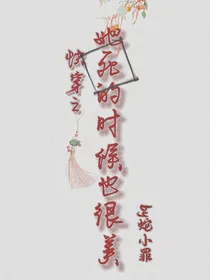 快穿之
她死的时候也很美
蛇小罪